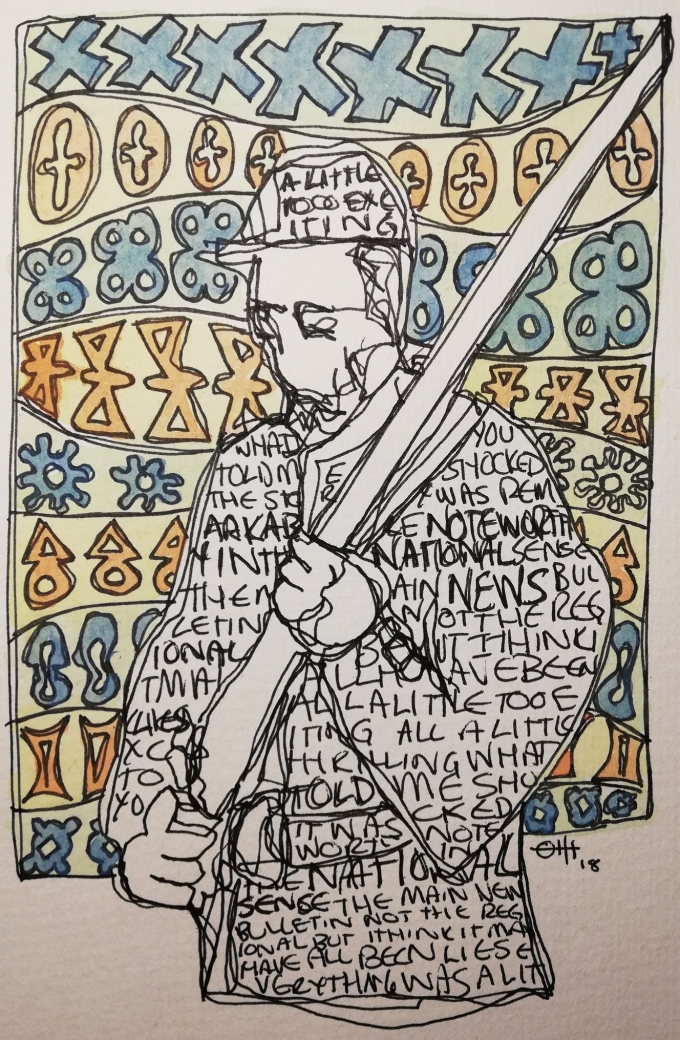 A LITTLE
TOOO EXC
ITING
WHAT YOU
TOLD M SHOCKED
THE WAS REM
NOTEWORTH
INTH NATIONAL SENSE
THEM AIN NEWS BUL
LETIN NOT THE REG
IONAL BUT I THINK I
TMA ALL HAVE BEEN
LIES ALL A LITTLE TOO E
XC ITING ALL A LITTLE
TO THRILLING WHAT
YO TOLD ME SHO
CKED
IT WAS NOTE
WORTH IN
THE NATIONAL
SENSE THE MAIN NEW
BULLETIN NOT THE REG
IONAL BUT I THINK IT MA
HAVE ALL BEEN LIES E
VERYTHING WAS A LIT
18